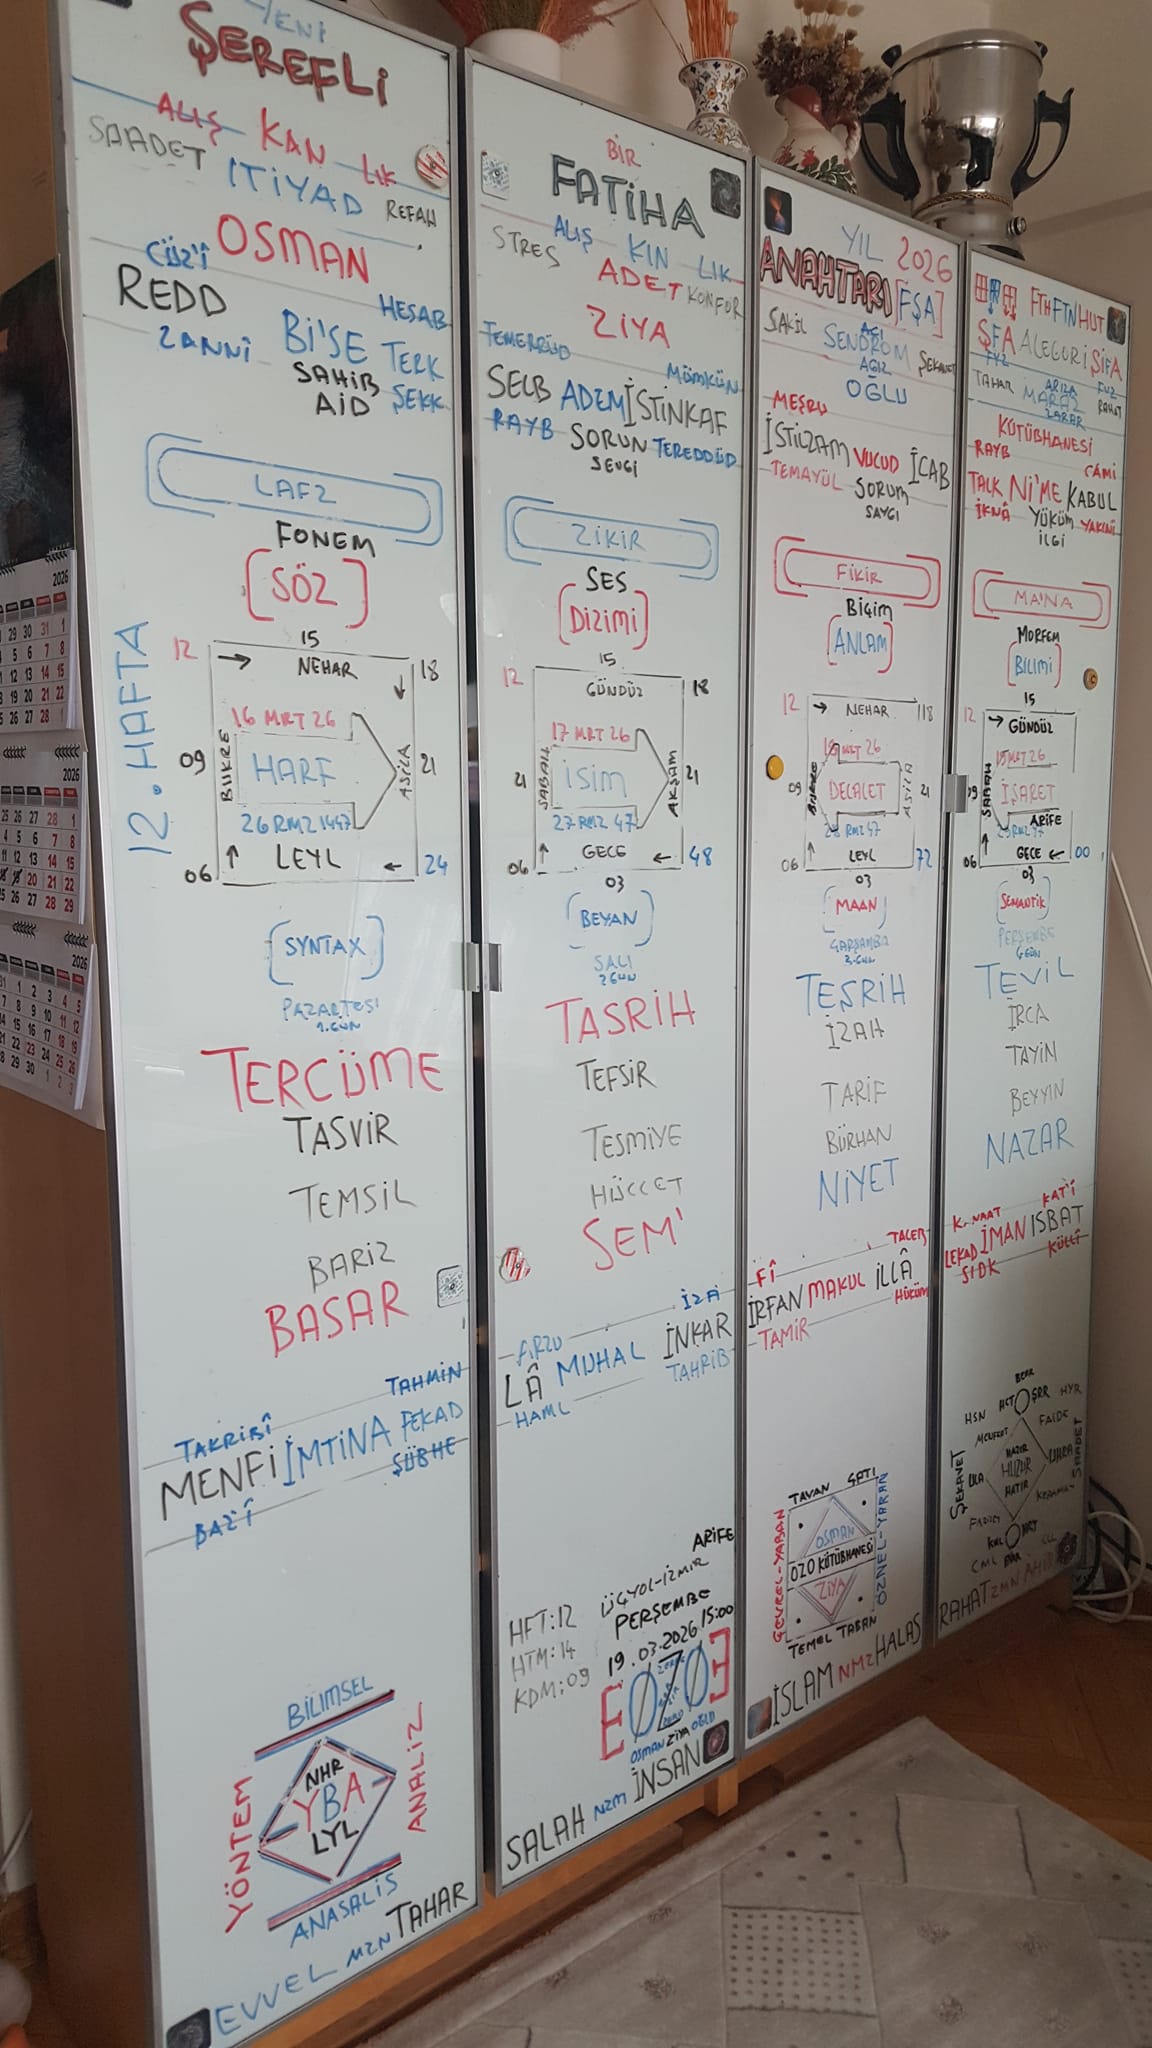 YENİ
ŞEREFLİ
ALIŞ KAN LIK
SAADET İTİYAD REFAH
OSMAN
CÜZ'Î
REDD HESAB
ZANNİ Bİ'SE TERK
SAHİB
AİD ŞEKK
LAFZ
FONEM
[SÖZ]
12. HAFTA
12 15 18
NEHAR
16 MRT 26
09 BUKRE HARF ASİLA 21
26 RMZ 1447
06 LEYL 24
[SYNTAX]
PAZARTESİ
1.GÜN
TERCÜME
TASVİR
TEMSİL
BARİZ
BASAR
TAHMİN
TAKRİBÎ
MENFİ İMTİNA FEKAD
ŞÜBHE
BAZ'Î
BİLİMSEL
YÖNTEM
NHR
YBA
LYL
ANALİZ
ANASALIS
EVVEL MZN TAHAR
BİR
FATİHA
ALIŞ KIN LIK
STRES ADET KONFOR
ZİYA
TEMERRÜD
MÜMKÜN
SELB ADEM İSTİNKAF
RAYB SORUN TEREDDÜD
SEVGİ
ZİKİR
SES
[DİZİMİ]
12 15 18
GÜNDÜZ
17 MRT 26
21 SABAH İSİM AKŞAM 21
27 RMZ 47
06 GECE 48
03
[BEYAN]
SALI
2.GÜN
TASRİH
TEFSİR
TESMİYE
HÜCCET
SEM'
ARZU İZAİ
LÂ MUHAL İNKAR
HAML TAHRİB
ARİFE
ÜÇYOL-İZMİR
HFT:12 PERŞEMBE
HTM:14 19.03.2026 15:00
KDM:09
EOZO3
OSMAN ZİYA OĞLU
SALAH NZM İNSAN
YIL 2026
ANAHTARI [FŞA]
ŞAKİL AĞI ŞEKAVET
SENDROM
AĞIZ
OĞLU
MEŞRU
İSTİLZAM VUCUD İCAB
TEMAYÜL SORUM
SAYGI
FİKİR
BİÇİM
[ANLAM]
12 NEHAR 18
18 MRT 26
09 BUKRE DELALET ASİLA 21
28 RMZ 47
06 LEYL 72
03
[MAAN]
ÇARŞAMBA
3.GÜN
TEŞRİH
İZAH
TARİF
BÜRHAN
NİYET
FÎ TALEB
İRFAN MAKUL İLLÂ
TAMİR HÜKÜM
TAVAN ÇATI
ÇEVREL-YABAN
OSMAN
OZO KÜTÜBHANESİ
ZİYA
ÖZNEL-YARAN
TEMEL TABAN
İSLAM NMZ HALAS
FTH FTN HUT
ŞFA ALEGORİ ŞİFA
FYZ ARIZA FYZ
TAHAR MARAZ RAHAT
ZARAR
KÜTÜBHANESİ
RAYB CÂMİ
TALK Nİ'ME KABUL
İKNÂ YÜKÜM YAKINİ
İLGİ
MA'NA
MORFEM
[BİLİMİ]
15
12 GÜNDÜZ
19 MRT 26
09 SABAH İŞARET
ARİFE
29 RMZ 47
06 GECE 00
03
[SEMANTİK]
PERŞEMBE
TEVİL
İRCA
TAYİN
BEYYİN
NAZAR
KANAAT KAT'İ
LEKAD İMAN ISBAT
SIDK KÜLLÎ
HCT ŞRR HYR
HSN FAİDE
MEVFRET
ŞEKAVET
HAZIR
HUZUR
HATIR
ULA UHRA
SAADET
CML
RAHAT ZMN AHİD
2026
2026
2026